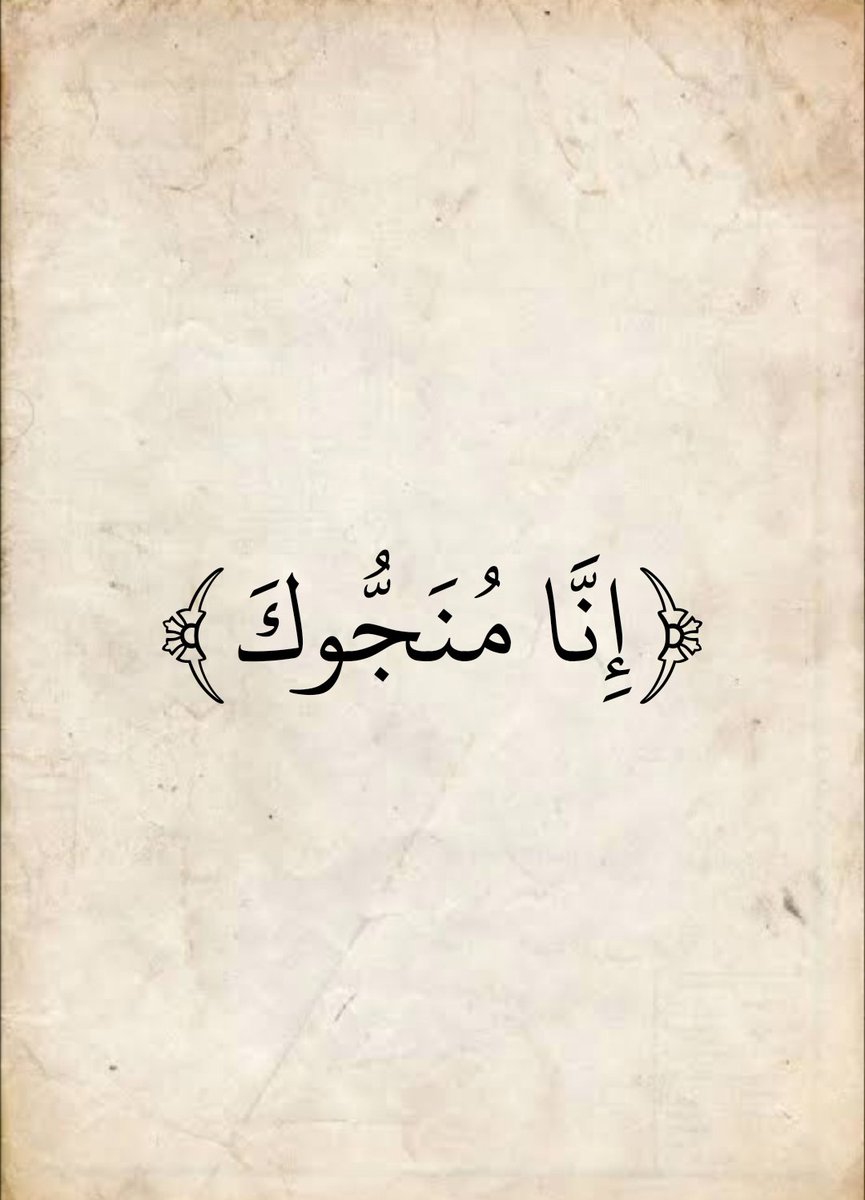 ﴿إِنَّا مُنَجُّوكَ﴾